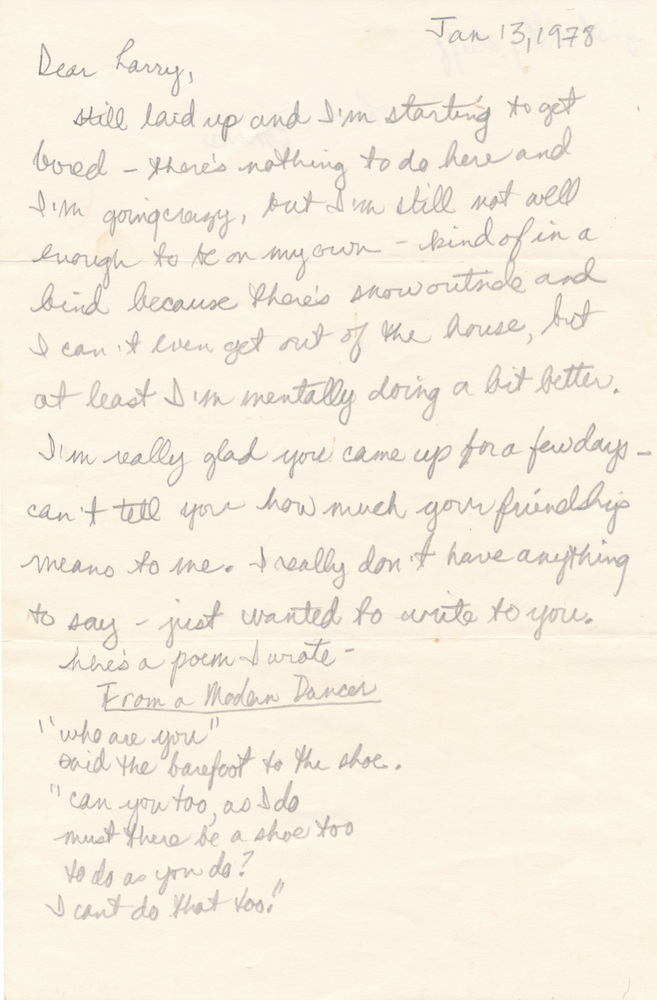 Jan 13, 1978
Dear Larry,
still laid up and I'm starting to get
bored - there's nothing to do here and
I'm going crazy, but I'm still not well
enough to be on my own - kind of in a
bind because there's snow outside and
I can't even get out of the house, but
at least I'm mentally doing a bit better.
I'm really glad you came up for a few days -
can't tell you how much your friendship
means to me. I really don't have anything
to say - just wanted to write to you.
here's a poem I wrote -
From a Modern Dancer
"who are you"
said the barefoot to the shoe.
"can you too, as I do
must there be a shoe too
to do as you do?
I can't do that too."